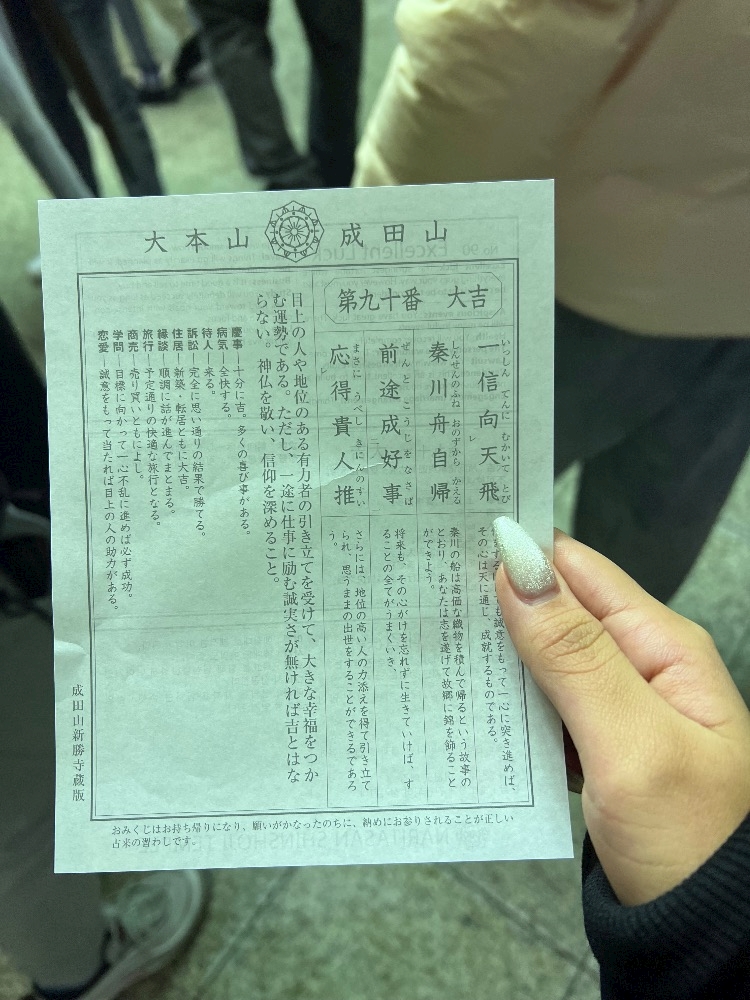 大本山 成田山
第九十番 大吉
一信向天飛
いっしん てんに むかいて とび
レ
秦川舟自帰
しんせんのふね おのずから かえる
前途成好事
ぜんと こうじをなさば
二 一
応得貴人推
まさに うべし きにんのすい
レ
も誠意をもって一心に突き進めば、
その心は天に通じ、成就するものである。
秦川の船は高価な織物を積んで帰るという故事の
とおり、あなたは志を遂げて故郷に錦を飾ること
ができよう。
将来も、その心がけを忘れずに生きていけば、す
ることの全てがうまくいき、
さらには、地位の高い人の力添えを得て引き立て
られ、思うままの出世をすることができるであろ
う。
目上の人や地位のある有力者の引き立てを受けて、大きな幸福をつか
む運勢である。ただし、一途に仕事に励む誠実さが無ければ吉とはな
らない。神仏を敬い、信仰を深めること。
慶事―十分に吉。多くの喜び事がある。
病気―全快する。
待人―来る。
訴訟―完全に思い通りの結果で勝てる。
住居―新築・転居ともに大吉。
縁談―順調に話が進んでまとまる。
旅行―予定通りの快適な旅行となる。
商売―売り買いともによし。
学問―目標に向かって一心不乱に進めば必ず成功。
恋愛―誠意をもって当たれば目上の人の助力がある。
成田山新勝寺蔵版
おみくじはお持ち帰りになり、願いがかなったのちに、納めにお参りされることが正しい
古来の習わしです。
No 90 Excellent Luck
NARITASAN SHINSHOJI TEMPLE